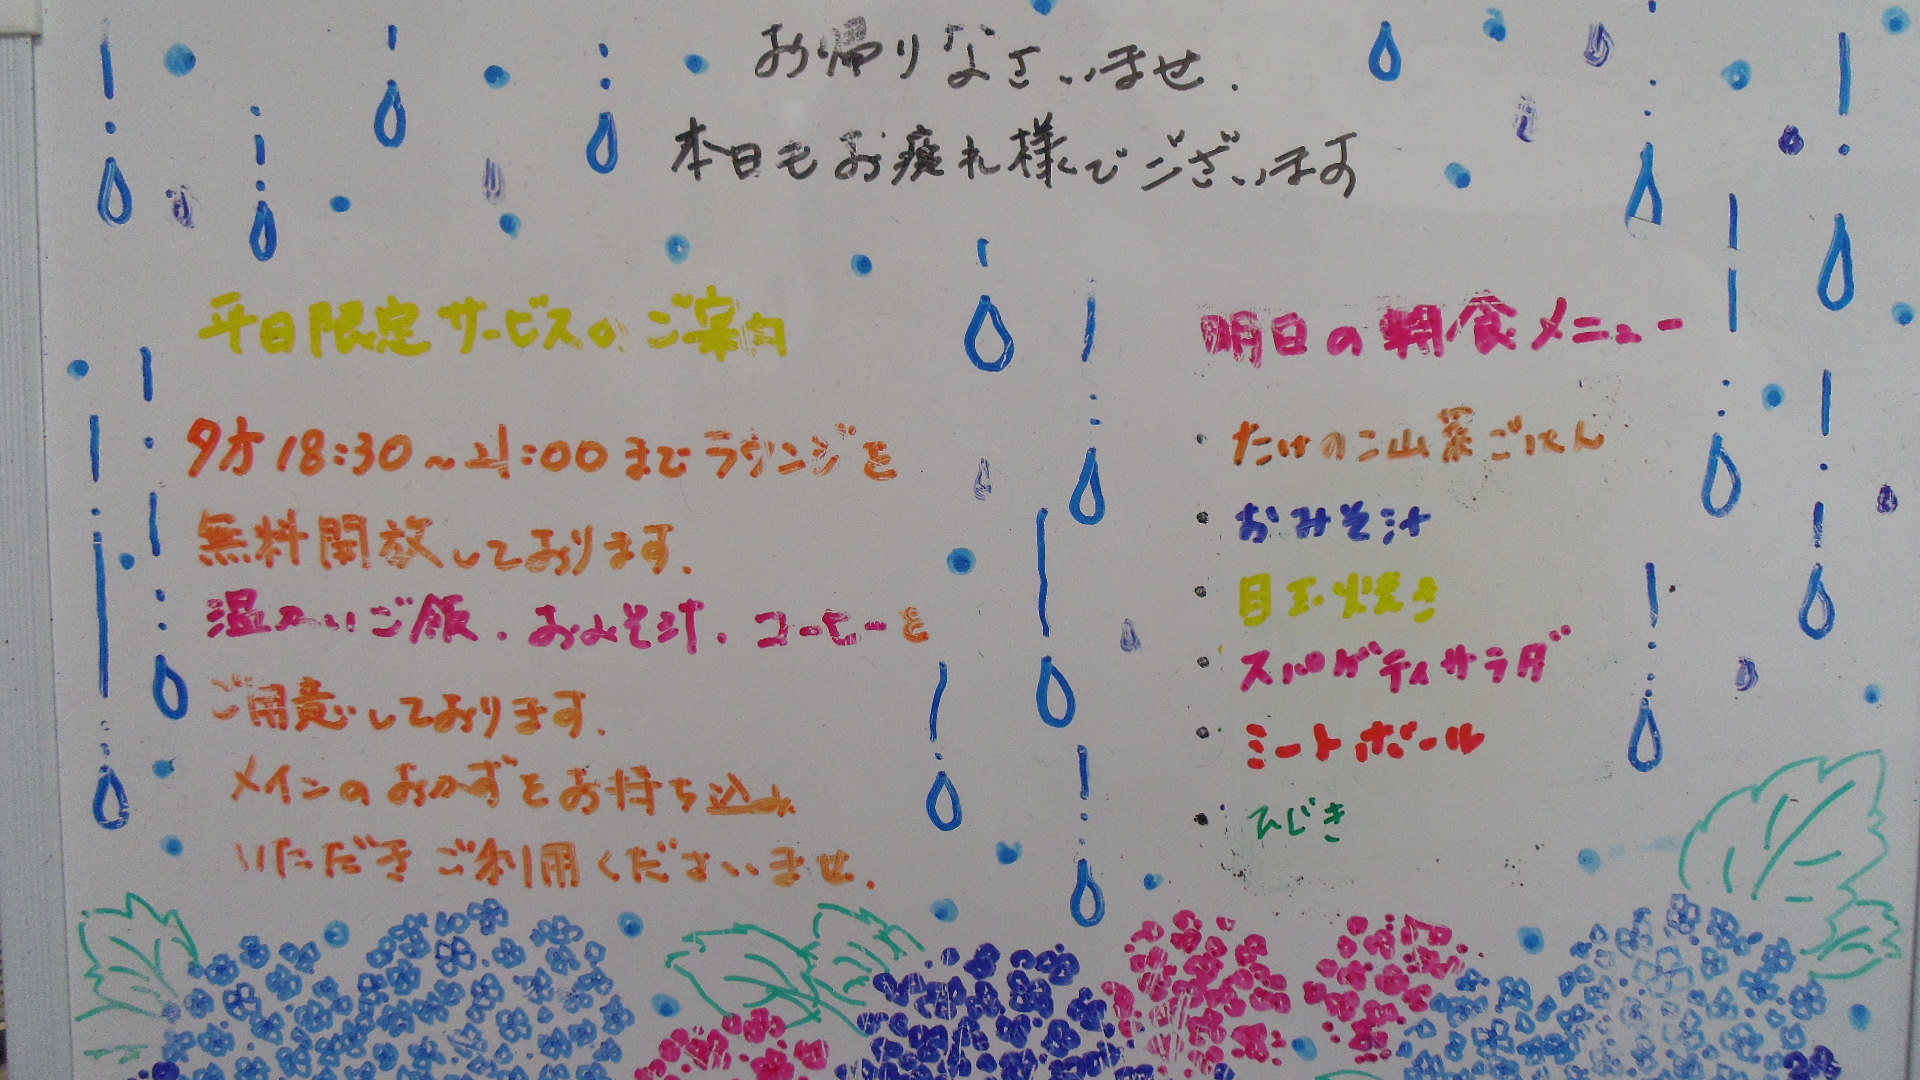 お帰りなさいませ.
本日もお疲れ様でございます
平日限定サービスのご案内
夕方18:30~21:00までラウンジを
無料開放しております.
温かいご飯.おみそ汁.コーヒーを
ご用意しております.
メインのおかずをお持ち込み
いただきご利用くださいませ.
明日の朝食メニュー
・たけのこ山菜ごはん
・おみそ汁
・目玉焼き
・スパゲティサラダ
・ミートボール
・ひじき